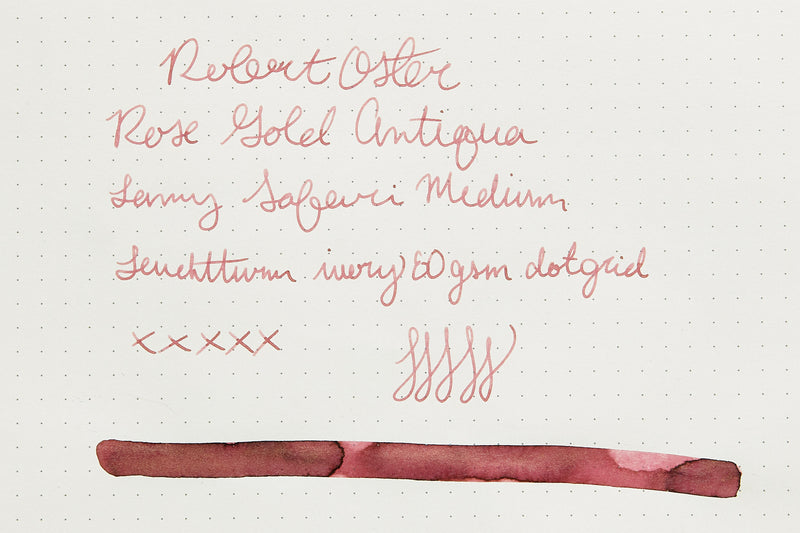 Robert Oster
Rose Gold Antiqua
Lamy Safari Medium
Leuchtturm ivory 80 gsm dotgrid
x x x x x